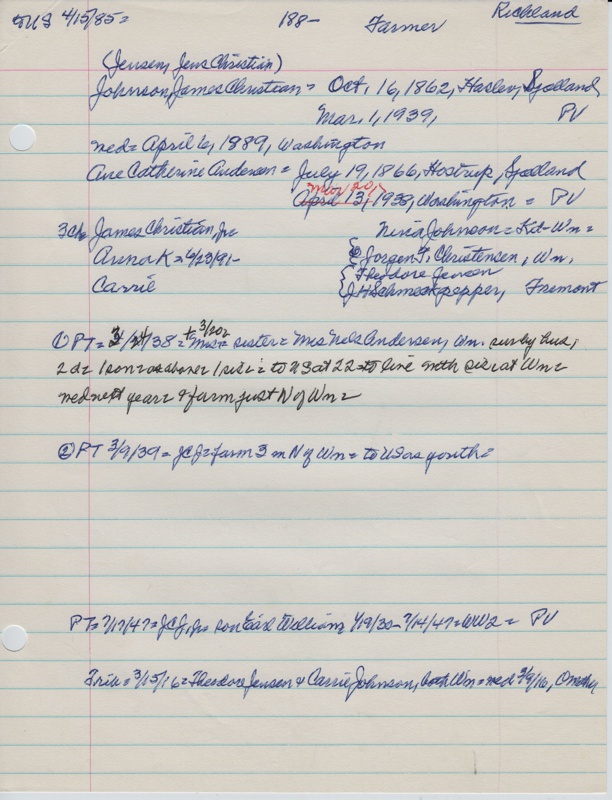 TUS 4/15/85= 188- Farmer Richland
(Jensen, Jens Christian)
Johnson, James Christian= Oct. 16, 1862, Haslev, Sjolland,
Mar. 1, 1939, PV
med= April 6, 1889, Washington
Ane Catherine Andersen= July 19, 1866, Hostrup, Sjolland
Mar 20,
April 13, 1938, Washington= PV
3ch James Christian, Jr Nina Johnson= Wn=
Anna K= 4/23/91- Jorgen F. Christensen, Wn.
Theodore Jensen
Carrie J H Schmeckpepper, Fremont
① PT= 3/24/38= + 3/20= Mrs= sister= Mrs Nels Andersen, Wn. surby hus,
2d= 1 son= as above= 1 sis= to US at 22= to live with sis at Wn=
med next year= + farm just N of Wn=
② PT 3/9/39= JCJ= farm 3 m N of Wn= to US as youth=
PT= 7/17/47= JCJ, Jr= son Earl William 1/19/20- 7/14/47= WW2= PV
Trib= 3/15/16= Theodore Jensen + Carrie Johnson, both Wn= med 3/8/16,